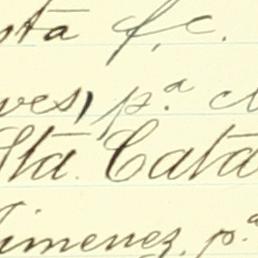 sta f.c.
ves, p.a c
Sta. Cata
Jimenez, p.a